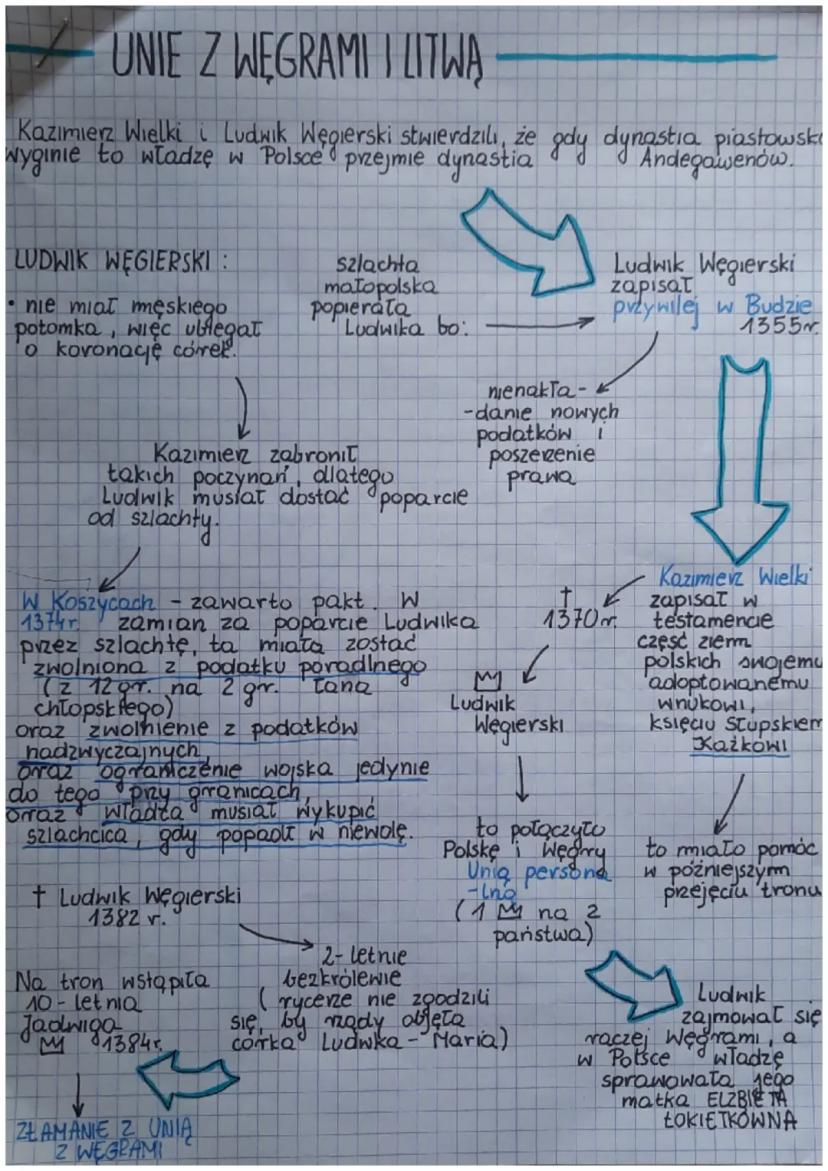 UNIE Z WĘGRAMI I LITWĄ
Kazimierz Wielki i Ludwik Węgierski stwierdzili, że gdy dynastia piastowska
wyginie to władzę w Polsce przejmie dynastia Andegawenów.
LUDWIK WĘGIERSKI :
• nie miał męskiego
potomka, więc ubiegał
o koronację córek.
szlachta
małopolska
popierała
Ludwika bo:
Ludwik Węgierski
zapisał
przywilej w Budzie
1355r.
nienakła-
-danie nowych
podatków i
poszerzenie
prawa
Kazimierz zabronił
takich poczynań, dlatego
Ludwik musiał dostać poparcie
od szlachty.
W Koszycach - zawarto pakt. W
1374r. zamian za poparcie Ludwika
przez szlachtę, ta miała zostać
zwolniona z podatku poradlnego
(z 12 gr. na 2 gr. łana
chłopskiego)
oraz zwolnienie z podatków
nadzwyczajnych
oraz ograniczenie wojska jedynie
do tego przy granicach,
oraz władza musiał wykupić
szlachcica, gdy popadł w niewolę.
† 1370r.
Kazimierz Wielki
zapisał w
testamencie
część ziem
polskich swojemu
adoptowanemu
wnukowi,
księciu słupskiem
Kaźkowi
Ludwik
Węgierski
to połączyło
Polskę i Węgry
Unią persona
-lną
(1 na 2
państwa)
to miało pomóc
w późniejszym
przejęciu tronu
† Ludwik Węgierski
1382 r.
2-letnie
bezkrólewie
( rycerze nie zgodzili
się, by rządy objęła
córka Ludwka - Maria)
Na tron wstąpiła
10-letnia
Jadwiga
1384r.
ZŁAMANIE Z UNIĄ
Z WĘGRAMI
Ludwik
zajmował się
raczej Węgrami, a
w Polsce władzę
sprawowała jego
matka ELŻBIETA
ŁOKIETKÓWNA